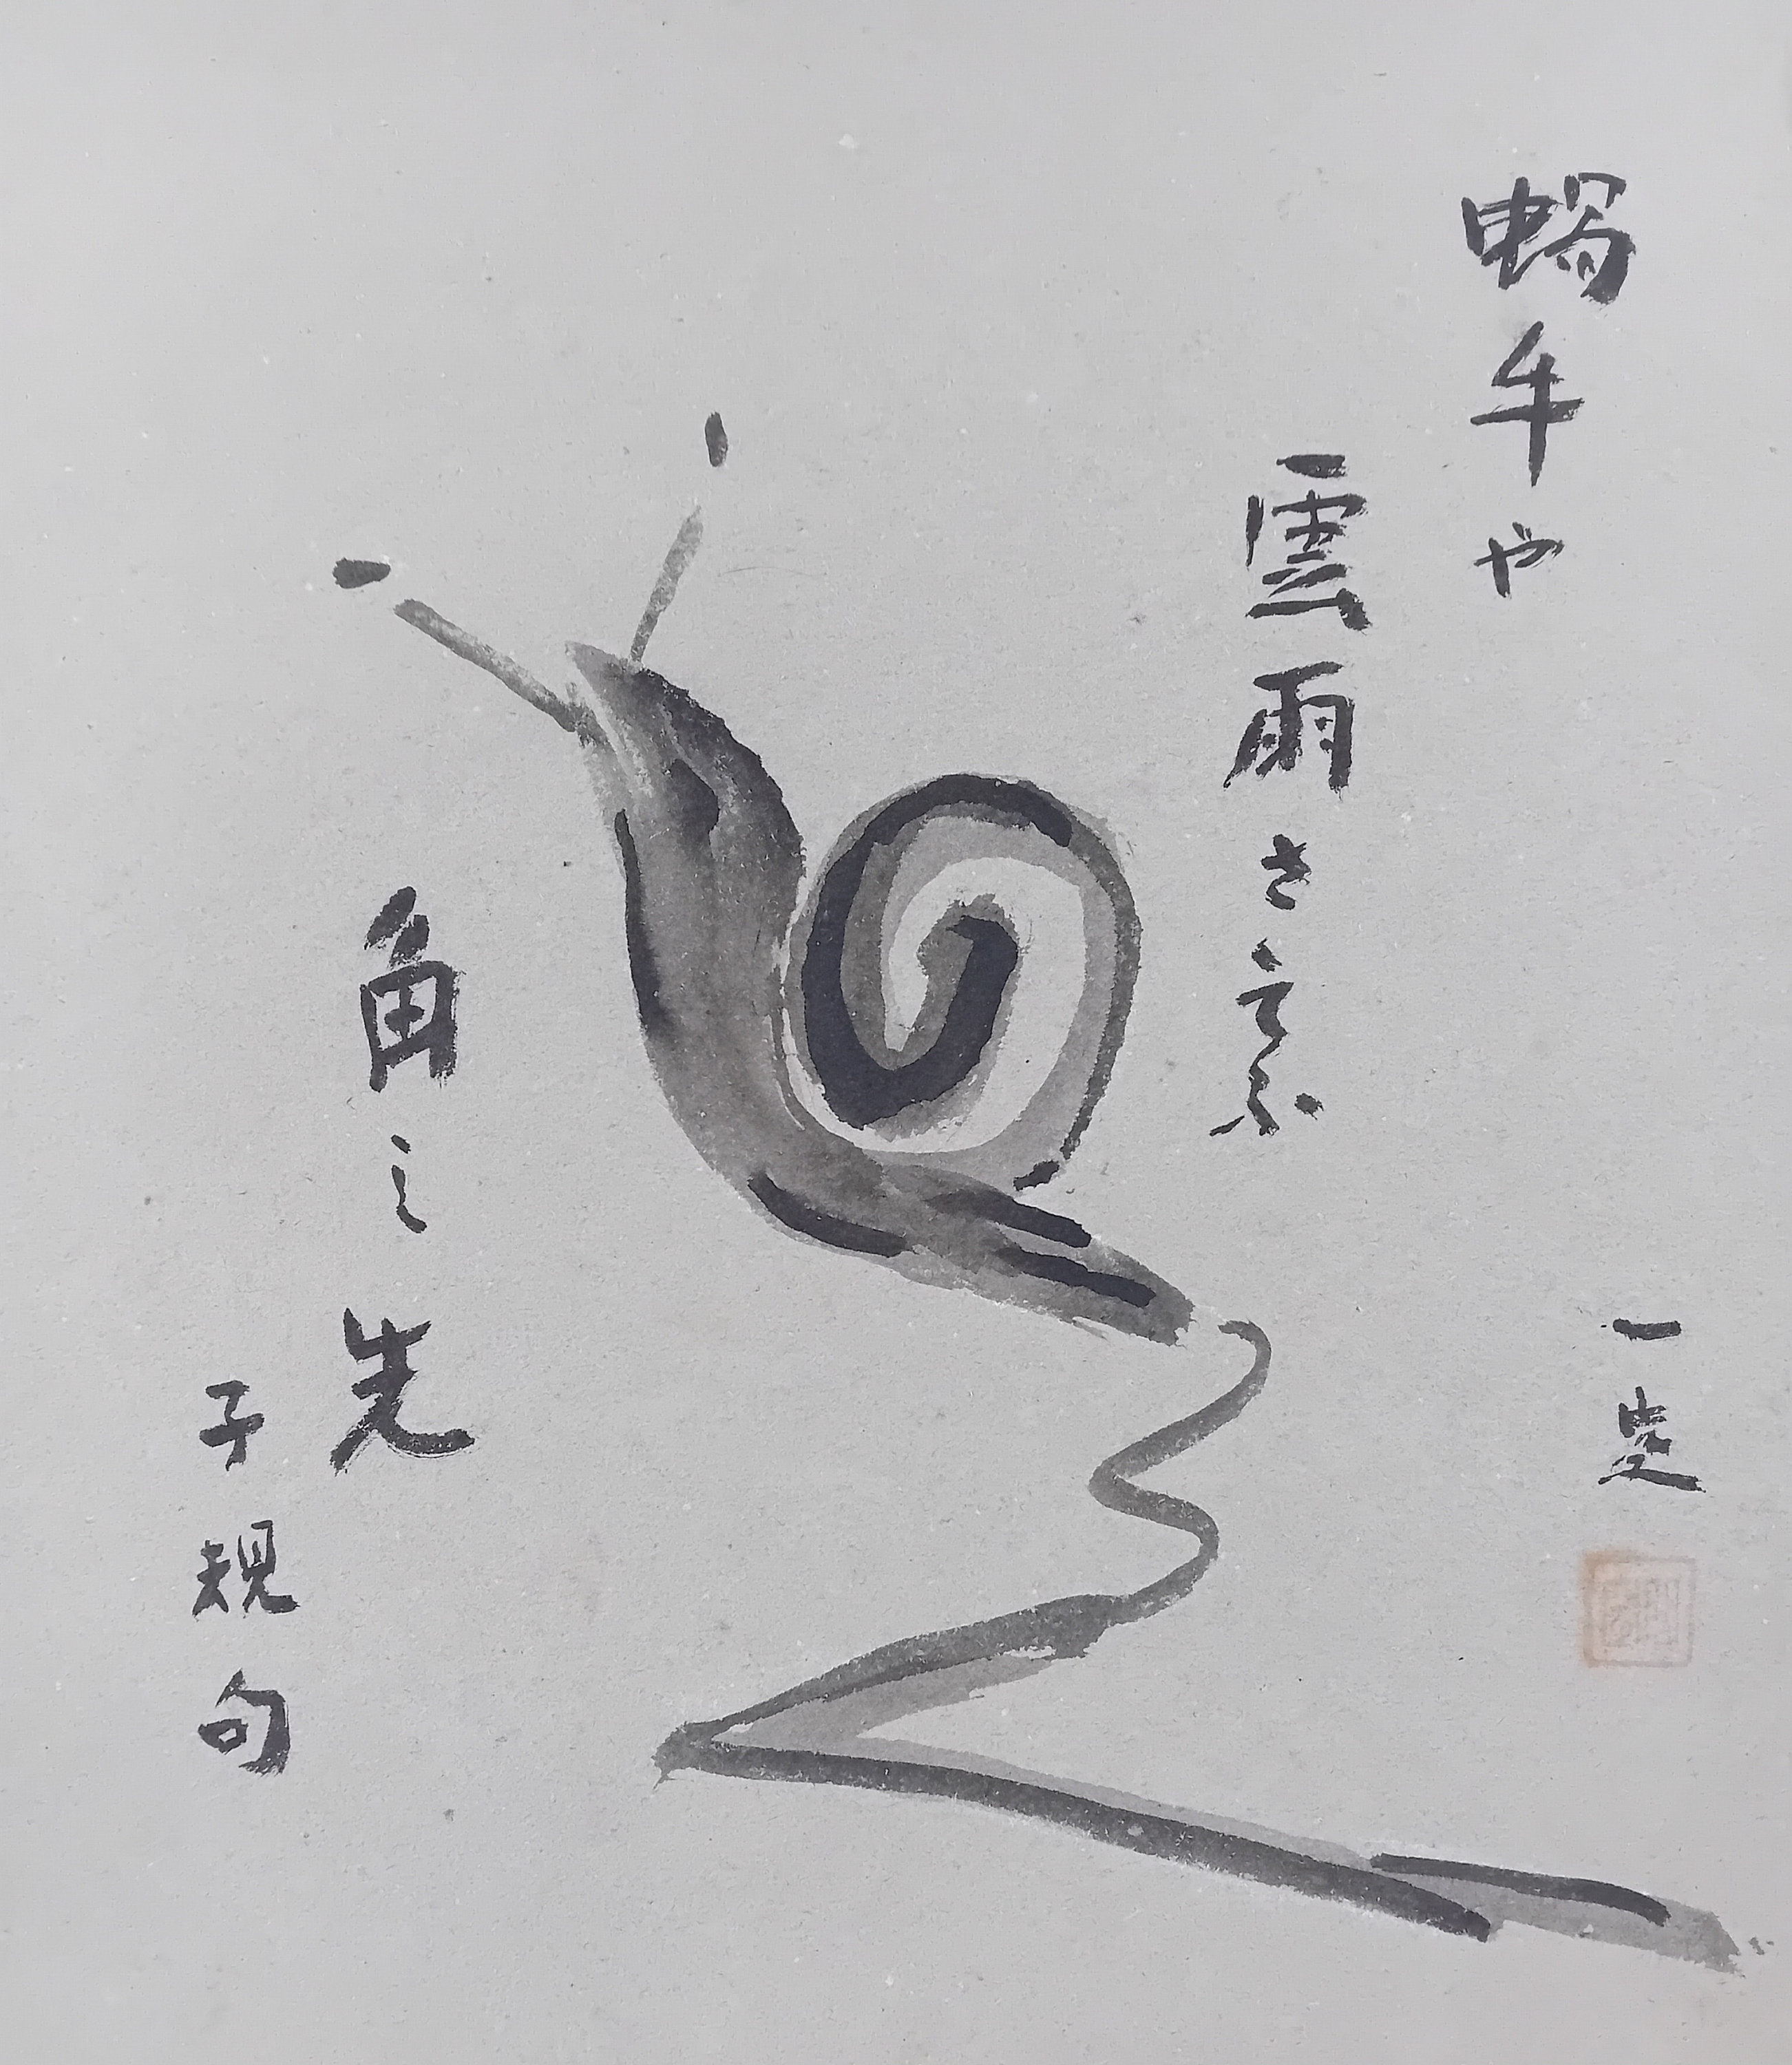 蝸牛や
雲雨さそふ
角之先
子規句
一